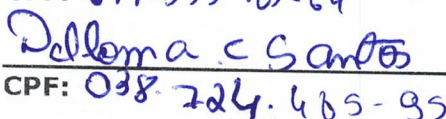 Delloma C Santos
CPF: 038.724.485-95